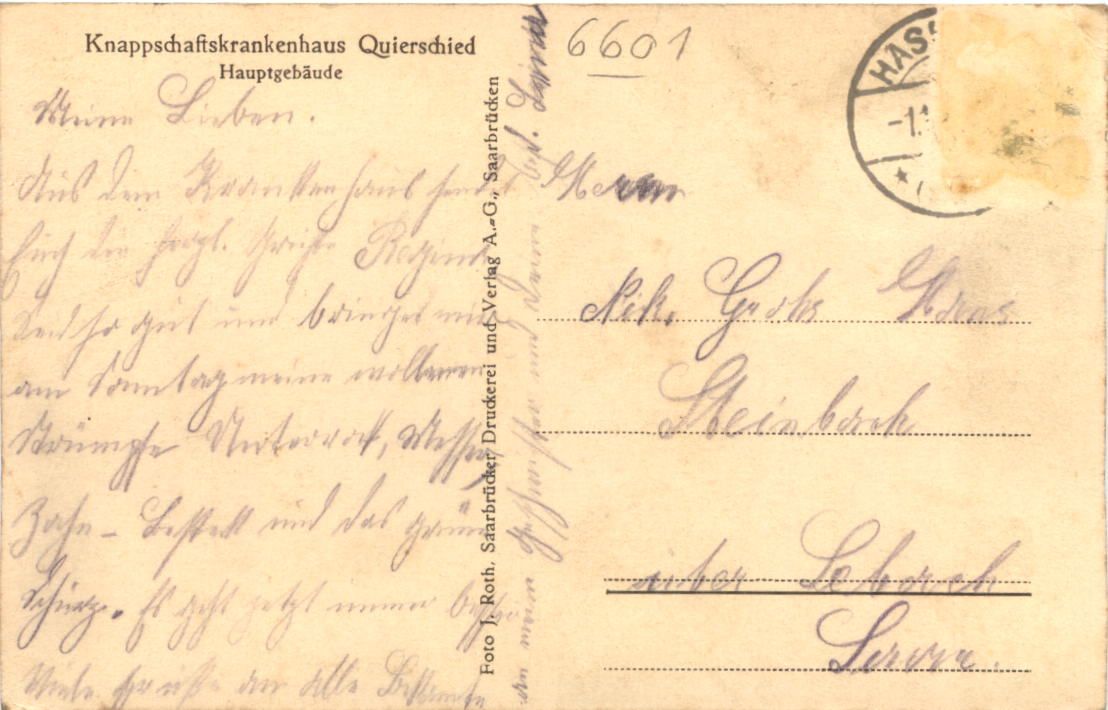 Knappschaftskrankenhaus Quierschied
Hauptgebäude
Meine Lieben.
Aus dem Krankenhaus sendet
Euch die herzl. Grüße Regina
Seid so gut und bringet mir
am Sonntag meine wollenen
Strümpfe Unterrock, Messer,
Zahn - Besteck und das grüne
Schürz. Es geht jetzt immer besser
Viele Grüße an alle Bekannte
an meine Geschwister und
Foto J. Roth, Saarbrücker Druckerei und Verlag A.-G., Saarbrücken
6601
HAS
-1.1
Herrn
Nik.
Steinbach
über Lebach
Saar.